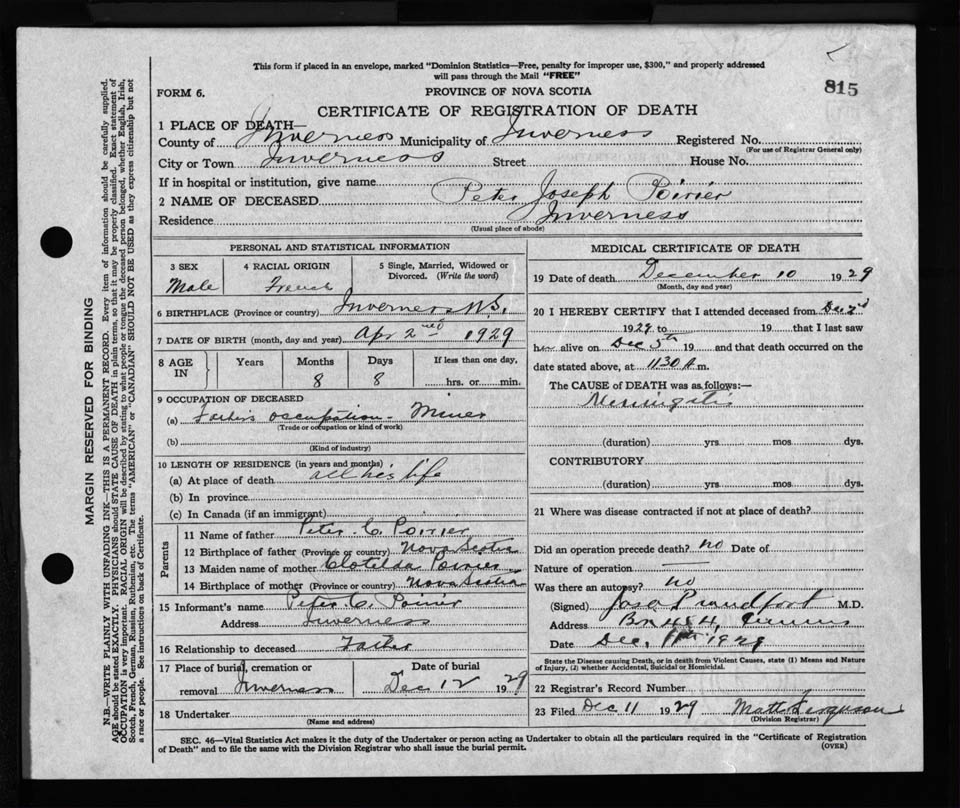 This form if placed in an envelope, marked "Dominion Statistics—Free, penalty for improper use, $300," and properly addressed
will pass through the Mail "FREE"
815
FORM 6.
PROVINCE OF NOVA SCOTIA
CERTIFICATE OF REGISTRATION OF DEATH
1 PLACE OF DEATH—
County of Inverness Municipality of Inverness Registered No.
(For use of Registrar General only)
City or Town Inverness Street House No.
If in hospital or institution, give name
2 NAME OF DECEASED Peter Joseph Poirier
Residence Inverness
(Usual place of abode)
PERSONAL AND STATISTICAL INFORMATION
3 SEX 4 RACIAL ORIGIN 5 Single, Married, Widowed or
Divorced. (Write the word)
Male French
6 BIRTHPLACE (Province or country) Inverness N.S.
7 DATE OF BIRTH (month, day and year) Apr 2nd 1929
8 AGE IN Years Months Days If less than one day,
8 8 hrs. or min.
9 OCCUPATION OF DECEASED
(a) Father's occupation - Miner
(Trade or occupation or kind of work)
(b)
(Kind of industry)
10 LENGTH OF RESIDENCE (in years and months)
(a) At place of death all his life
(b) In province
(c) In Canada (if an immigrant)
Parents
11 Name of father Peter C. Poirier
12 Birthplace of father (Province or country) Nova Scotia
13 Maiden name of mother Clotilda Poirier
14 Birthplace of mother (Province or country) Nova Scotia
15 Informant's name Peter C. Poirier
Address Inverness
16 Relationship to deceased Father
17 Place of burial, cremation or Date of burial
removal Inverness Dec 12 1929
18 Undertaker
(Name and address)
MEDICAL CERTIFICATE OF DEATH
19 Date of death December 10 1929
(Month, day and year)
20 I HEREBY CERTIFY that I attended deceased from Dec 2nd
1929 to 19 that I last saw
him alive on Dec 5th 19 and that death occurred on the
date stated above, at 11 30 A.m.
The CAUSE OF DEATH was as follows:—
Meningitis
(duration) yrs. mos. dys.
CONTRIBUTORY
(duration) yrs. mos. dys.
21 Where was disease contracted if not at place of death?
Did an operation precede death? no Date of
Nature of operation —
Was there an autopsy? no
(Signed) M.D.
Address Box 484,
Date Dec. 1929
State the Disease causing Death, or in death from Violent Causes, state (1) Means and Nature
of Injury, (2) whether Accidental, Suicidal or Homicidal.
22 Registrar's Record Number
23 Filed Dec 11 1929 Matt Ferguson
(Division Registrar)
SEC. 46—Vital Statistics Act makes it the duty of the Undertaker or person acting as Undertaker to obtain all the particulars required in the "Certificate of Registration
of Death" and to file the same with the Division Registrar who shall issue the burial permit.
(OVER)
MARGIN RESERVED FOR BINDING
N.B.—WRITE PLAINLY WITH UNFADING INK—THIS IS A PERMANENT RECORD. Every item of information should be carefully supplied.
AGE should be stated EXACTLY. PHYSICIANS should STATE CAUSE OF DEATH in plain terms, so that it may be properly classified. Exact statement of
OCCUPATION is very important. RACIAL ORIGIN will be described by stating to what people or tongue the deceased person belonged, whether English, Irish,
Scotch, French, German, Russian, Ruthenian, etc. The terms "AMERICAN" or "CANADIAN" SHOULD NOT BE USED as they express citizenship but not
a race or people. See instructions on back of Certificate.